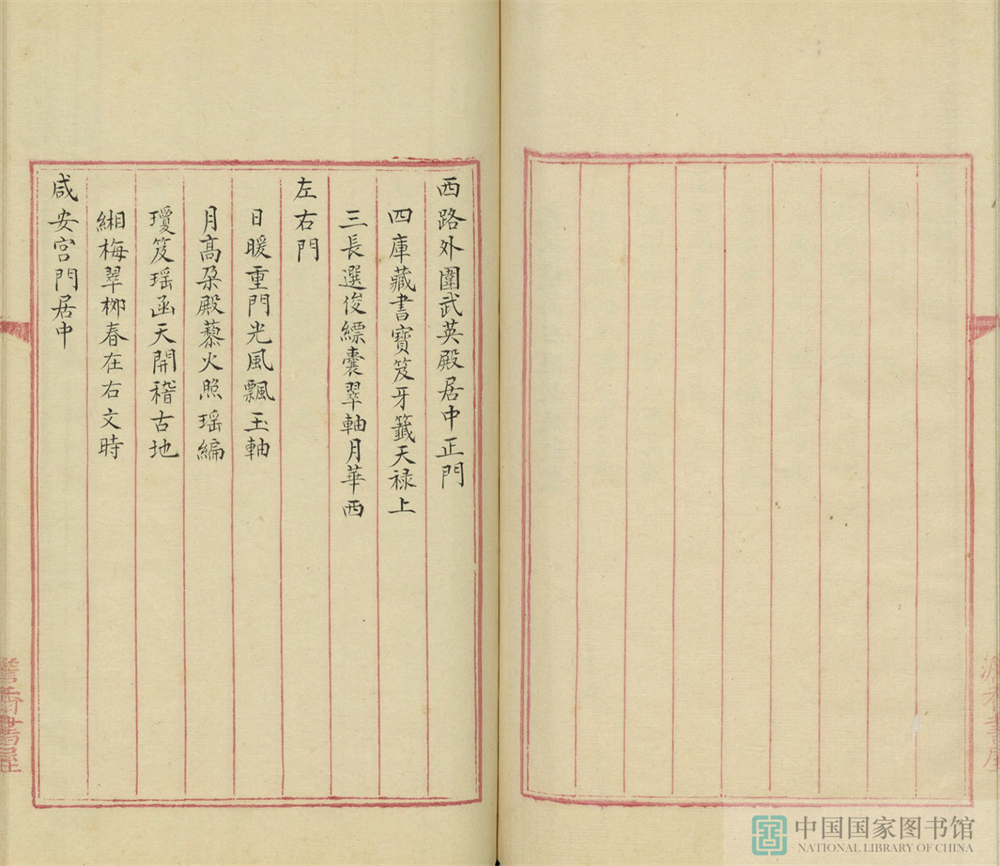 西路外圍武英殿居中正門
四庫藏書寶笈牙籤天祿上
三長選俊縹囊翠軸月華西
左右門
日暖重門光風飄玉軸
月高朶殿藜火照瑶編
瓊笈瑶函天開稽古地
緗梅翠桺春在右文時
咸安宮門居中
中国国家图书馆
NATIONAL LIBRARY OF CHINA